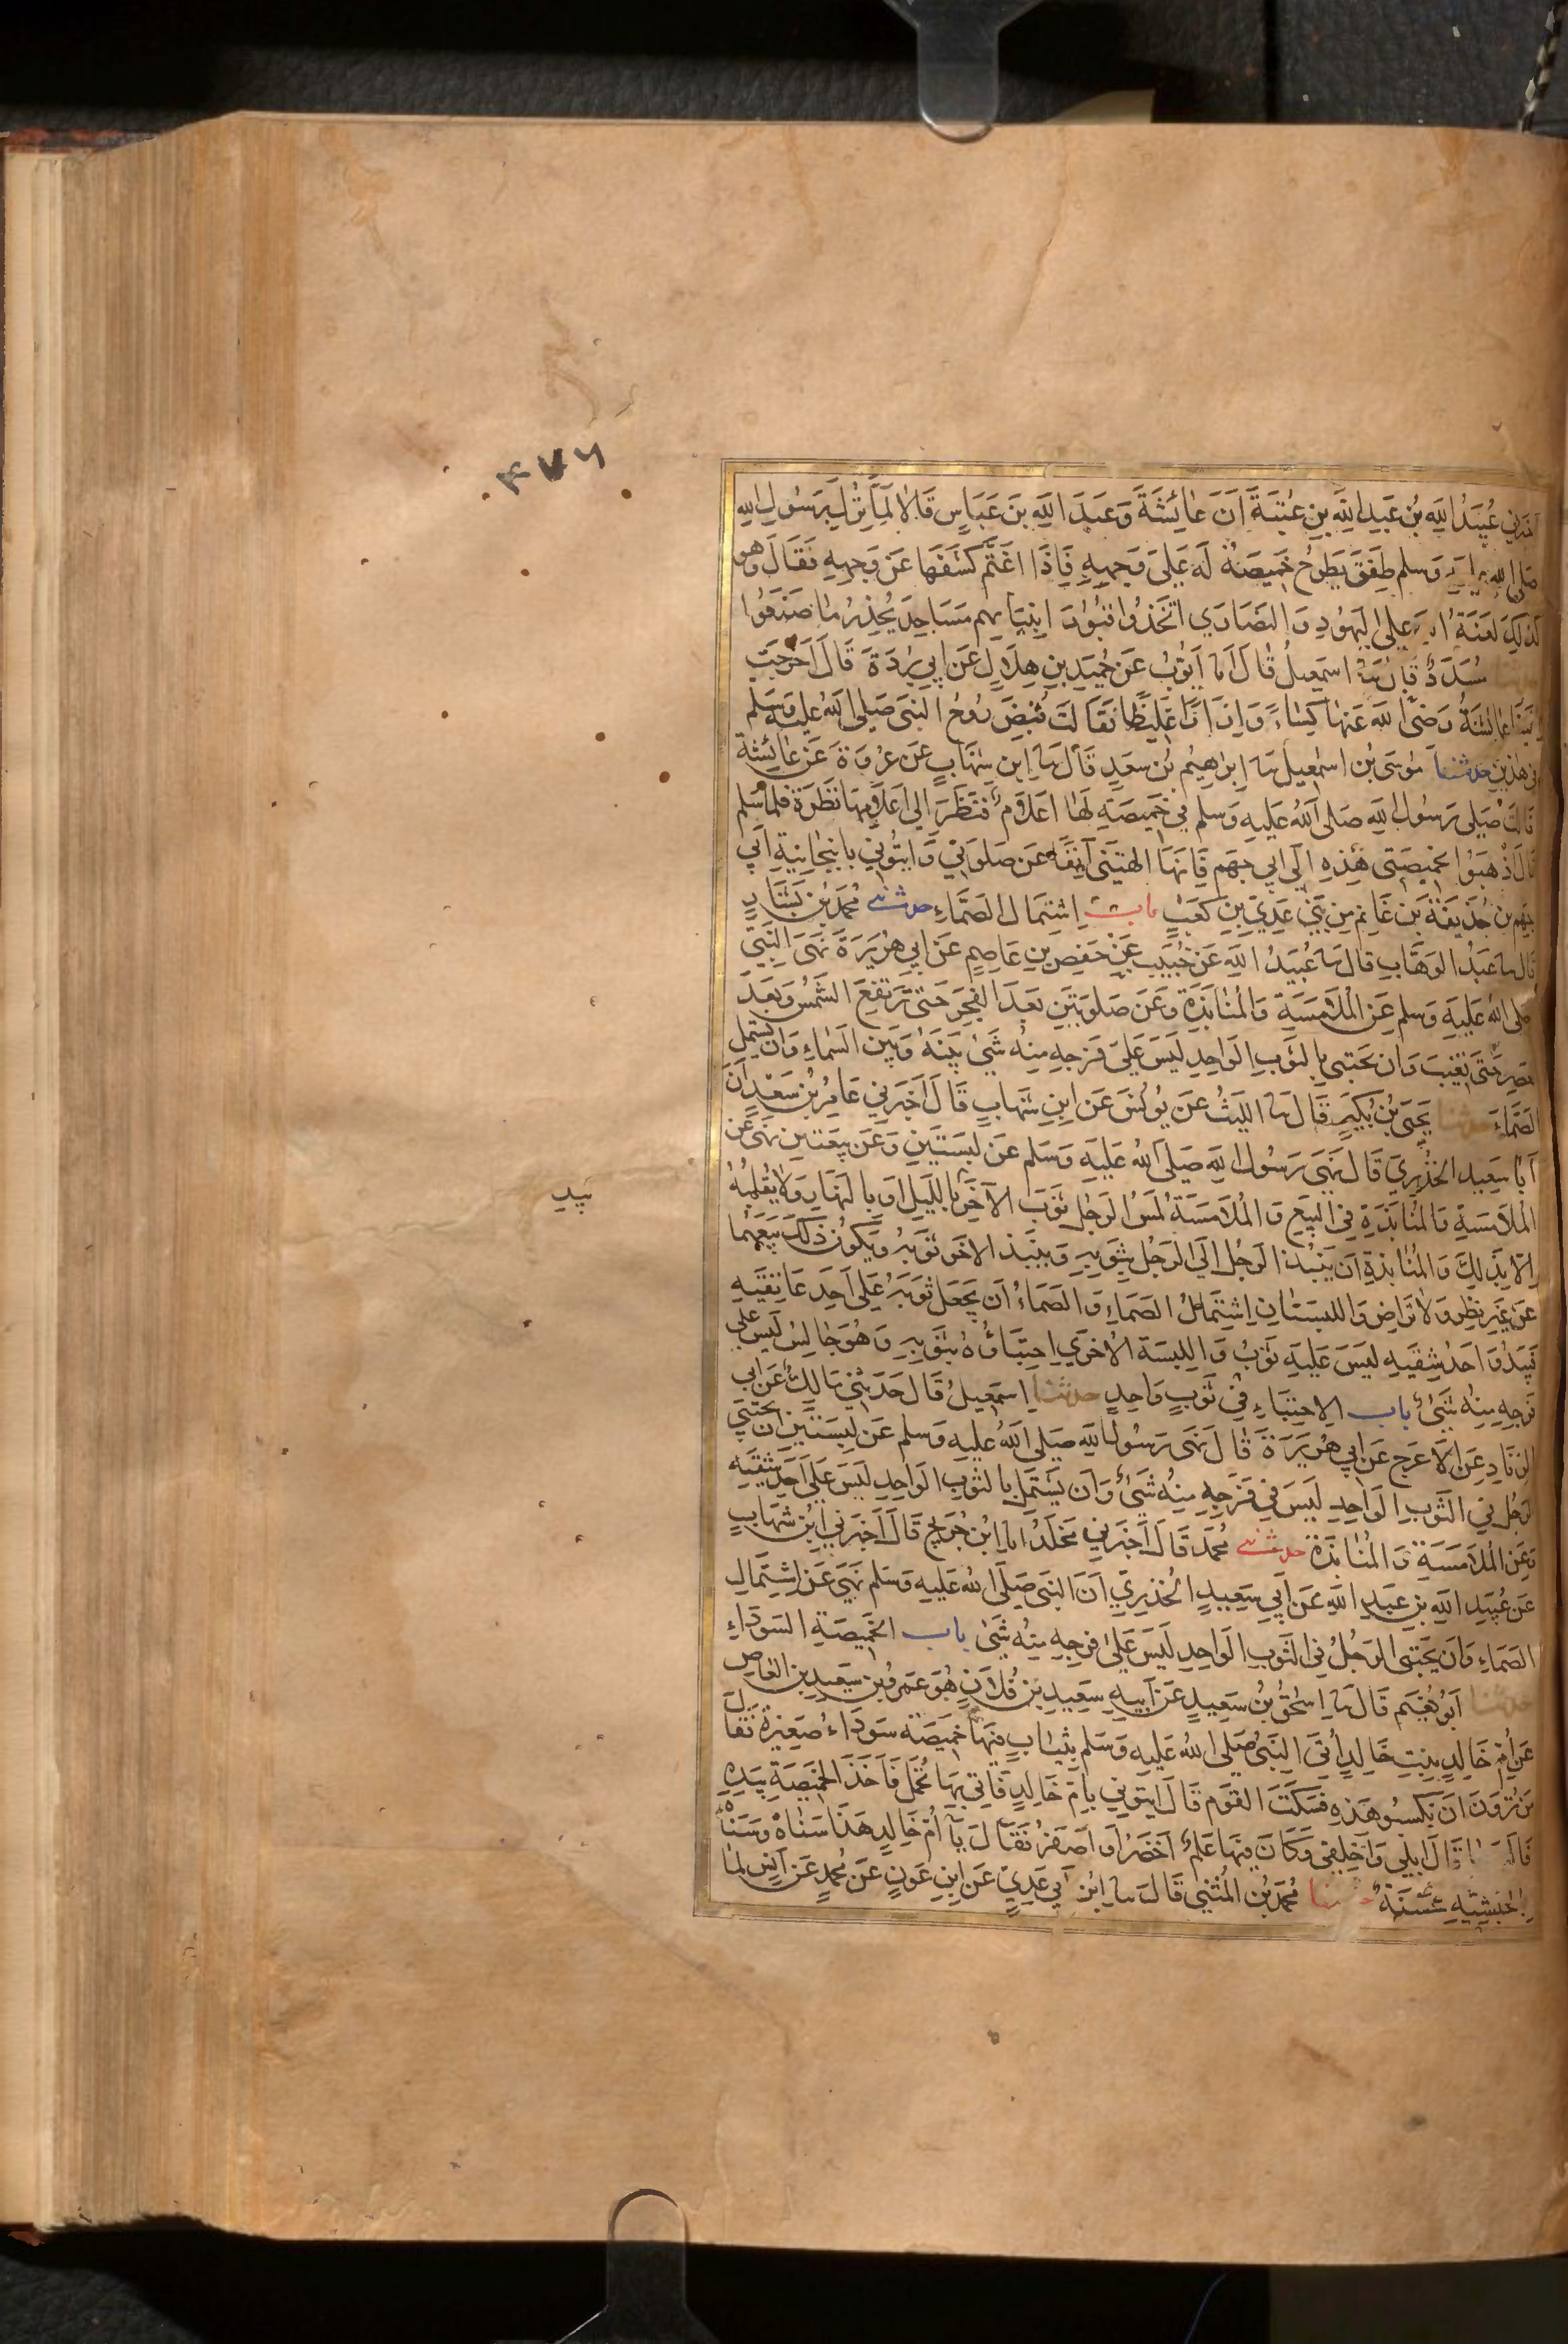 ۴۷۶
اخبرني عُبَيْدُ اللهِ بْنُ عَبْدِ اللهِ بْنِ عُتْبَةَ اَنَّ عَائِشَةَ وَعَبْدَ اللهِ بْنَ عَبَّاسٍ قَالَا لَمَّا نَزَلَ بِرَسُولِ اللهِ
صَلى الله عليه وسلم طَفِقَ يَطْرَحُ خَمِيصَةً لَه عَلَى وَجْهِهِ فَاِذَا اغْتَمَّ كَشَفَهَا عَنْ وَجْهِهِ فَقَالَ وَهو
كَذَلِكَ لَعْنَةُ الله على اليَهُودِ وَالنَّصَارَي اتَّخَذُوا قُبُورَ انْبِيَايِهم مَسَاجِدَ يُحَذِّرُ مَا صَنَعُوا
حدثنا مُسَدَّدٌ قَالَ نا اسمعيلُ قَالَ انا اَيُّوبُ عَن حُمَيْدِ بنِ هِلَالٍ عَن ابي بُرْدَةَ قَالَ اَخْرَجَت
اِلَيْنَا عَائِشَةُ رَضيَ الله عَنها كِسَاءً وَاِزَارًا غَلِيظًا فَقَالَتْ قُبِضَ رُوحُ النبي صَلى اللهُ عليه وَسَلم
في هذين حدثنا مُوسَى بْن اسمعيلَ نا اِبرَهيمُ بْن سَعْدٍ قَالَ نا ابن شِهَابٍ عَن عُرْوَةَ عَن عَائِشة
قَالَتْ صَلى رَسُولُ الله صَلى اللهُ عَليه وَسلم في خَميصَةٍ لَهَا اَعْلَامٌ فَنَظَرَ اِلى اَعْلَامِهَا نَظْرَةً فلما سَلم
قَالَ اذْهَبُوا بخَميصَتي هَذِهِ اِلَى ابي جَهْم فَاِنَّهَا الهَتْنِي آنِفًا عَن صَلوَتِي وَايتُونِي بِانْبِجَانِيَةِ اَبي
جَهم بْن حُذَيفَةَ بْن غَانِم مِن بَني عَدِيِّ بنِ كَعْبٍ باب اِشْتِمَال الصَّمَّاءِ حدثني مُحمد بْن بَشَّارٍ
قَال نا عَبْدُ الوَهَّابِ قال نا عُبَيْدُ اللهِ عَن خُبَيْب عَن حَفْصِ بنِ عَاصِمٍ عَن ابي هُرَيْرَةَ نَهَى النَّبِيّ
صَلى الله عَليه وَسلم عَن المُلَامَسَةِ وَالمُنَابَذَةِ وَعَن صَلوتَيْن بَعْدَ الفَجْرِ حَتَّى تَرْتَفِعَ الشَّمسُ وَبَعْدَ
العصر حَتَّى تَغِيبَ وَان يَحْتَبي بالثوب الوَاحِدِ لَيسَ عَلَى فَرْجِهِ مِنْهُ شَيءٌ بَيْنَهُ وَبَيْن السَّمَاءِ وَان يشْتَمل
الصَّمَّاءَ حدثنا يَحْيَى بْنُ بُكَيْرٍ قَالَ نا اللَّيْثُ عَن يُونُسَ عَن ابنِ شِهَابٍ قَالَ اَخْبَرَنِي عَامِرُ بْنُ سَعْدٍ اَنَّ
اَبَا سَعِيدٍ الخُدْرِيَّ قَالَ نَهَى رَسُولُ الله صَلى اللهُ عَليه وَسَلم عَن لِبْسَتَيْنِ وَعَن بَيعَتَين نَهَى عَن
المُلَامَسَةِ وَالمُنَابَذَةِ في البَيْعِ وَالمُلَامَسَةُ لَمْسُ الرَّجُلِ ثَوْبَ الآخَرِ بِاللَّيْلِ اَوْ بِالنَّهَارِ وَلَا يُقْلِبُهُ
اِلَّا بِذَلِكَ وَالمُنَابَذَةُ اَن يَنْبُذَ الرَّجُلُ اِلَى الرَّجُلِ بِثَوْبِهِ وَيَنْبِذَ الآخَر ثَوْبَهُ وَيَكُونُ ذَلِكَ بَيْعَهُمَا
عَن غَيْرِ نَظَرٍ وَلَا تَرَاضٍ وَاللبسَتَان اِشْتِمَالُ الصَّمَّاءِ وَالصَّمَّاءُ اَن يَجْعَلَ ثَوْبَهُ عَلَى اَحَدِ عَاتِقَيْهِ
فَيَبْدُو اَحَدُ شِقَّيْهِ لَيْسَ عَلَيْهِ ثَوْبٌ وَاللبسَة الاُخرَي اِحْتِبَاؤُهُ بِثَوْبِهِ وَهُوَ جَالِسٌ لَيْسَ عَلى
فَرْجِهِ مِنْهُ شَيْءٌ باب الاِحْتِبَاءِ فِي ثَوْبٍ وَاحِدٍ حدثنا اِسمعيلُ قَالَ حَدَّثَنِي مَالِكٌ عَن ابي
الزنَادِ عَن الاَعْرَج عَن ابي هُرَيْرَةَ قَالَ نَهَى رَسُولُ اللهِ صَلى اللهُ عَليه وَسلم عَن لِبْسَتَيْنِ اَن يَحْتَبِي
الرَّجُلُ في الثَّوْبِ الوَاحِدِ لَيْسَ فِي فَرْجِهِ مِنْهُ شَيْءٌ وَاَن يَشْتَمِلَ بِالثوب الوَاحِدِ لَيسَ عَلَى اَحَدِ شِقَّيْهِ
وَعَن المُلَامَسَةِ وَالمُنَابَذَةِ حدثني مُحَمَّد قَالَ اَخبَرَنِي مَخْلَدٌ انا ابن جُرَيْجٍ قَالَ اَخْبَرَني ابْن شِهَابٍ
عَن عُبَيْدِ اللهِ بْنِ عَبْدِ اللهِ عَن اَبِي سَعِيدٍ الخُدْرِيِّ اَنَّ النَّبي صَلَّى اللهُ عَليه وَسَلم نَهَى عَن اِشْتِمَالِ
الصَّمَّاءِ وَان يَحْتَبي الرَّجُلُ في الثَّوبِ الوَاحِدِ لَيْسَ عَلَى فَرْجِهِ مِنْهُ شَيْءٌ باب الخَمِيصَةِ السَّوْدَاءِ
حدثنا اَبُو نُعَيْم قَالَ نا اِسْحٰقُ بْنُ سَعِيدٍ عَن اَبِيهِ سَعِيدِ بْنِ فُلَانٍ هُوَ عَمْرُو بْن سَعِيدِ بن العَاص
عَن اُمِّ خَالِدٍ بِنْتِ خَالِدٍ اُتِيَ النَّبِيُّ صَلى اللهُ عَليه وَسَلم بِثِيَابٍ فِيهَا خَمِيصَة سَوْدَاءُ صَغِيرَةٌ فَقَالَ
مَن تُرَوْنَ اَن نَكْسُو هَذِهِ فَسَكَتَ القَوْمُ قَالَ ايتُونِي بِاُمِّ خَالِدٍ فَاُتِيَ بِهَا تُحْمَلُ فَاَخَذَ الخَمِيصَةَ بِيَدِهِ
فَالبسها قَالَ ابْلِي وَاَخْلِقِي وَكَانَ فِيهَا عَلَمٌ اَخْضَرُ اَو اَصْفَرُ فَقَالَ يَا اُمَّ خَالِدٍ هَذَا سَنَاهْ وَسَنَاهْ
بالحَبَشِيَّةِ حَسَنَةٌ حدثنا مُحَمَّدُ بْنُ المُثَنَّى قَالَ نا ابْنُ اَبي عَدِيٍّ عَن ابنِ عَونٍ عَن مُحَمَّدٍ عَن اَنَسٍ لمَّا